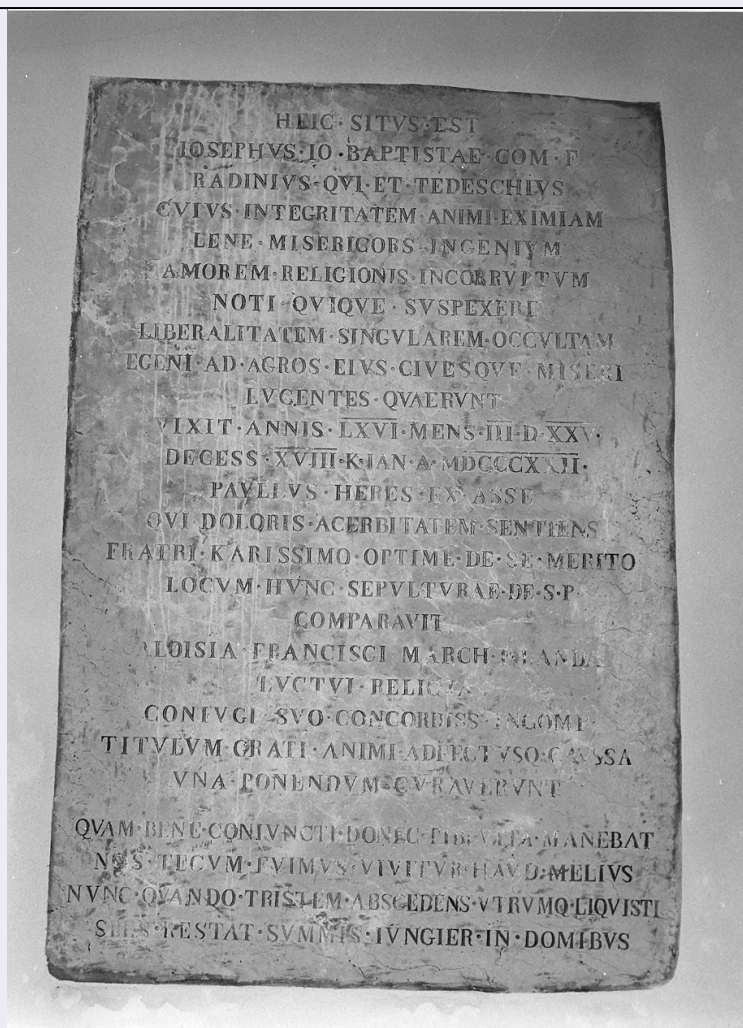 HEIC · SITVS · EST
IOSEPHVS · IO · BAPTISTAE · COM · F
RADINIVS · QVI · ET · TEDESCHIVS
CVIVS · INTEGRITATEM · ANIMI · EXIMIAM
LENE · MISERICORS · INGENIVM
AMOREM · RELIGIONIS · INCORRVPTVM
NOTI · QVIQVE · SVSPEXERE
LIBERALITATEM · SINGVLAREM · OCCVLTAM
EGENI · AD · AGROS · EIVS · CIVESQVE · MISERI
LVGENTES · QVAERVNT
VIXIT · ANNIS · LXVI · MENS · III · D · XXV ·
DECESS · XVIII · K · IAN · A · MDCCCXXII ·
PAVLLVS · HERES · EX · ASSE
QVI · DOLORIS · ACERBITATEM · SENTIENS
FRATRI · KARISSIMO · OPTIME · DE · SE · MERITO
LOCVM · HVNC · SEPVLTVRAE · DE · S · P
COMPARAVIT
ALOISIA · FRANCISCI · MARCH ·
LVCTVI · RELICTA
CONIVGI · SVO · CONCORDISS · INCOMP ·
TITVLVM · GRATI · ANIMI · ADFECTVSQ · CAVSSA
VNA · PONENDVM · CVRAVERVNT
QVAM · BENE · CONIVNCTI · DONEC · TIBI · VITA · MANEBAT
NOS · TECVM · FVIMVS · VIVITVR · HAVD · MELIVS
NVNC · QVANDO · TRISTEM · ABSCEDENS · VTRVMQ · LIQVISTI
SPES · RESTAT · SVMMIS · IVNGIER · IN · DOMIBVS